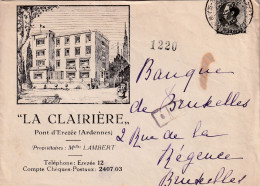 1220
"LA CLAIRIÈRE"
Pont d'Erezée (Ardennes)
Propriétaire : LAMBERT
Téléphone : Erezée 12
Compte Chèques-Postaux : 2407.03
Banque
de Bruxelles
2 Rue de la
Régence
Bruxelles